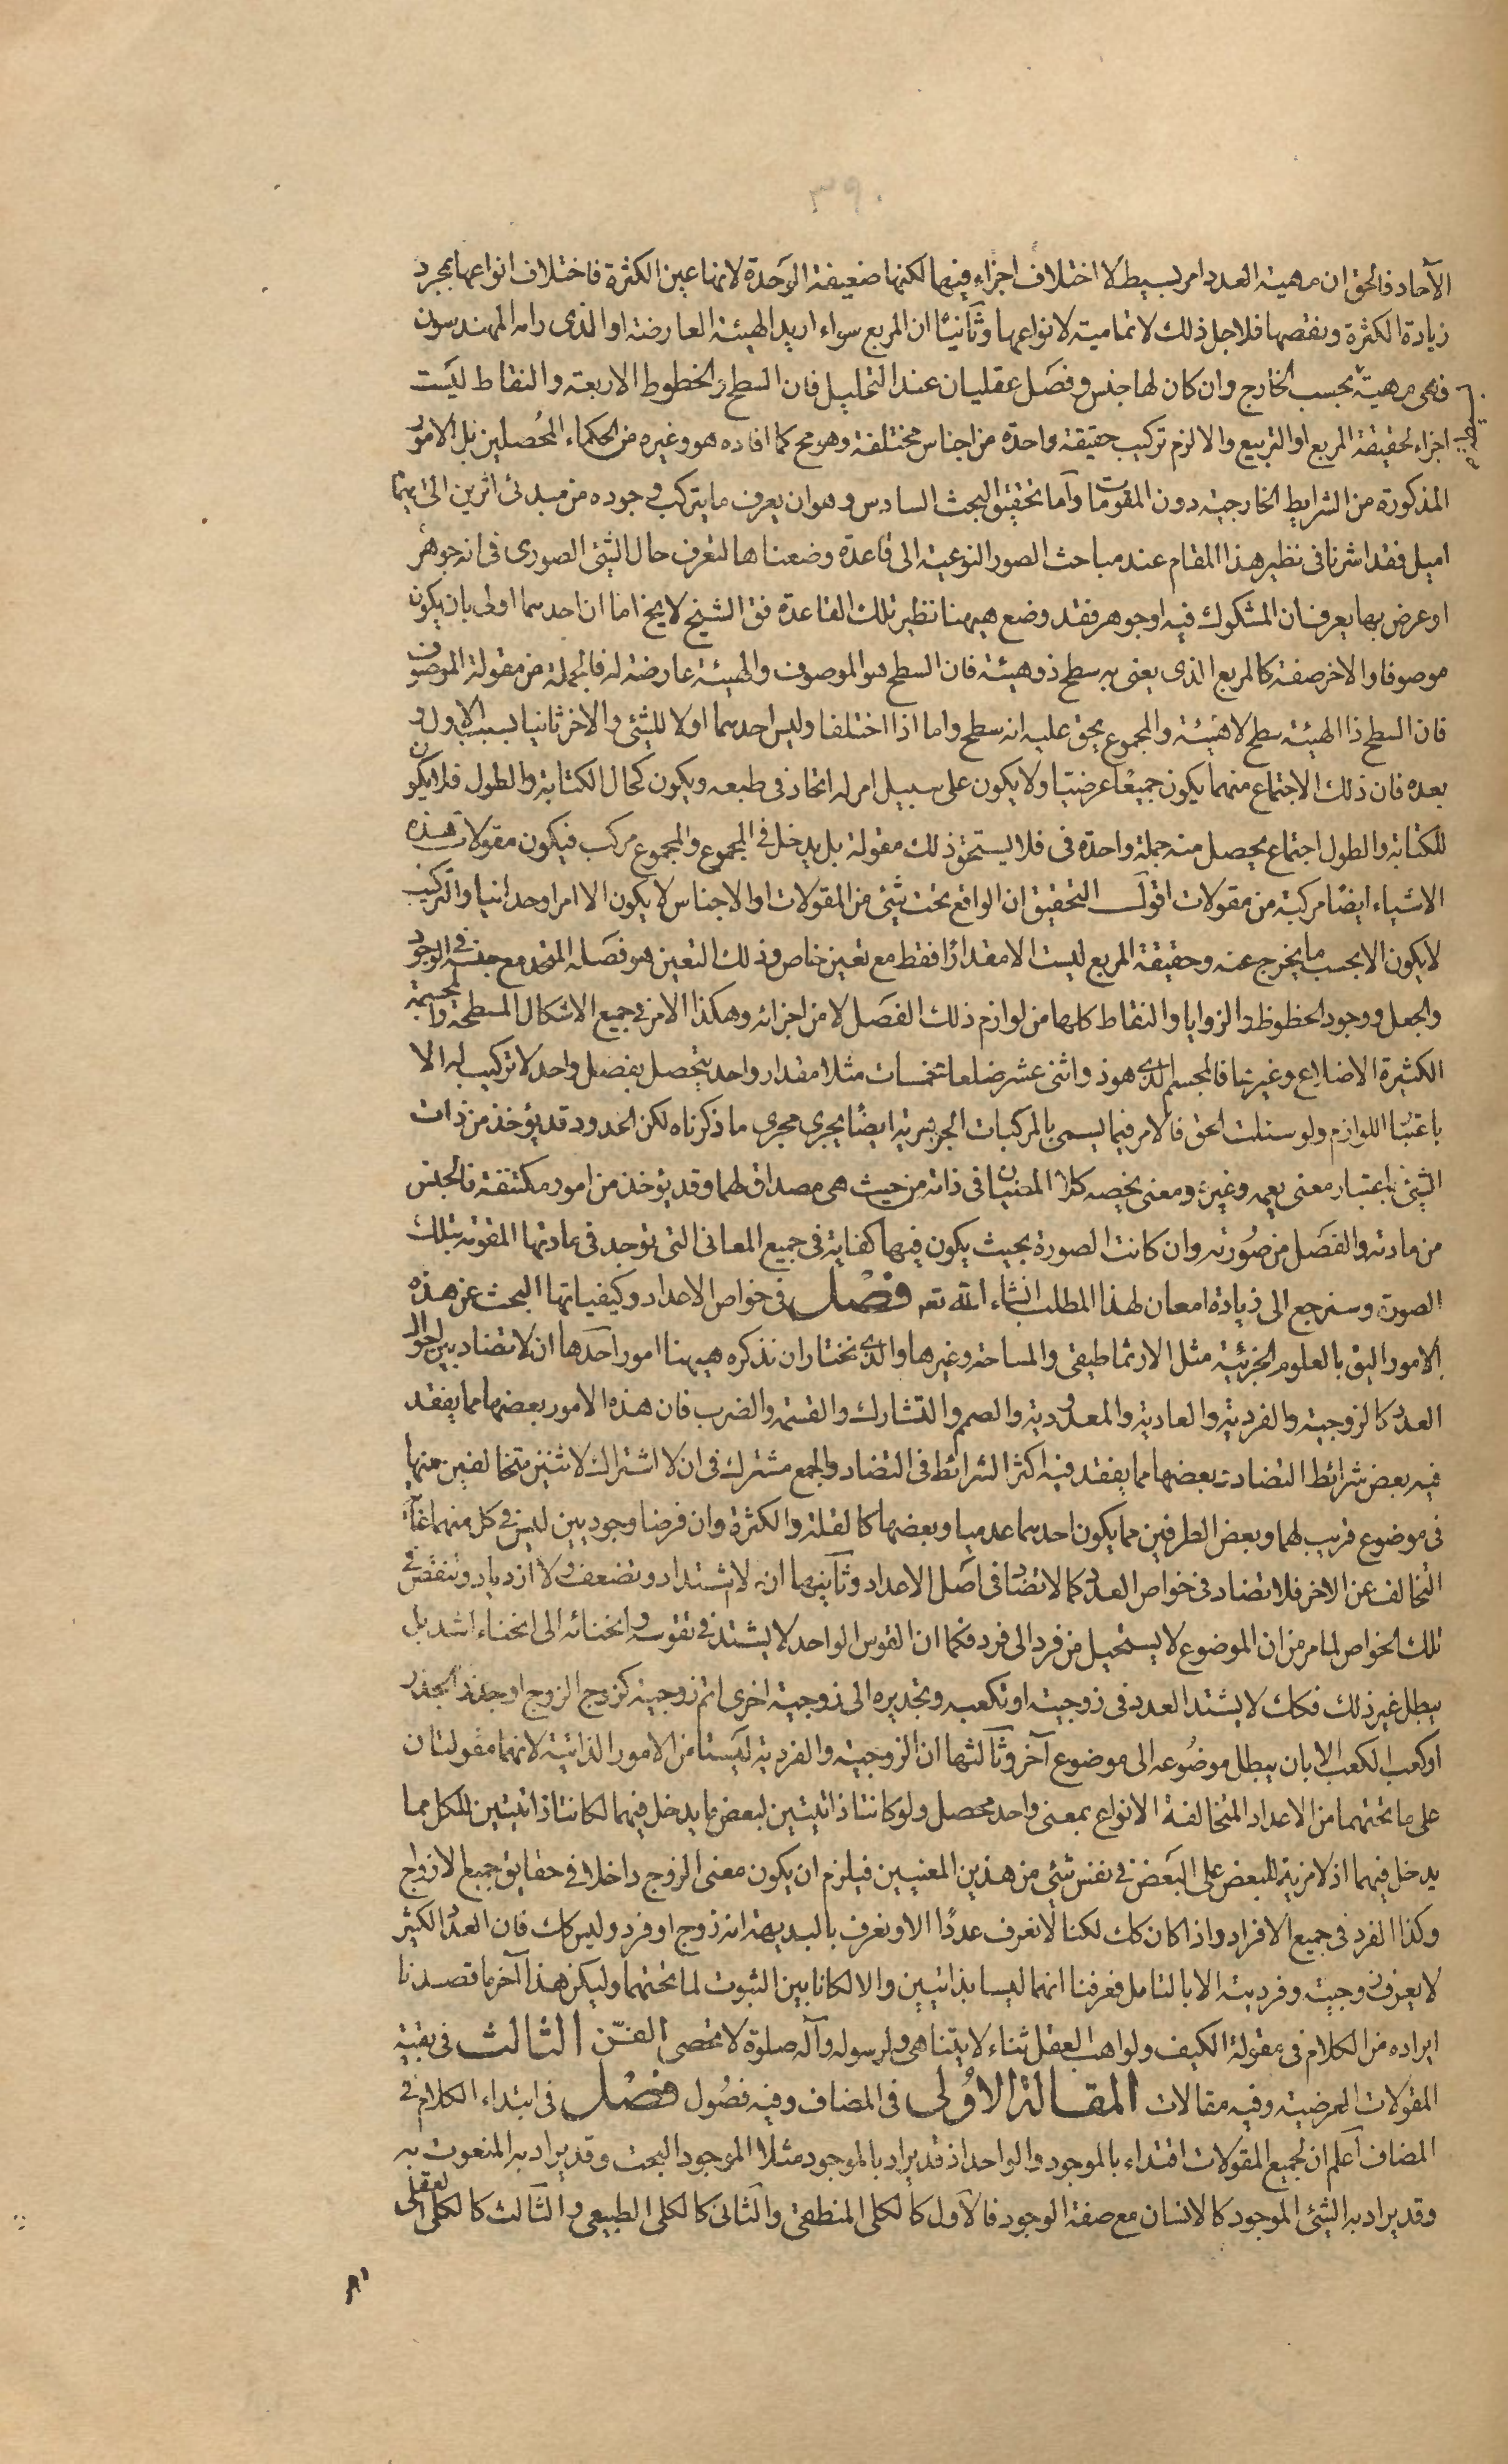 ٣٩٠
الآحاد فالحق ان مهية العدد امر بسيط لا اختلاف اجزاء فيها لكنها ضعيفة الوحدة لانها عين الكثرة فاختلاف انواعها بمجرد
زيادة الكثرة ونقصها فلاجل ذلك لا تمامية لانواعها وثانيًا ان المربع سواء اريد الهيئة العارضة او الذى رامه المهندسون
فهى مهية بحسب الخارج وان كان لها جنس وفصل عقليان عند التحليل فان السطح والخطوط الاربعة والنقاط ليست
اجزاء لحقيقة المربع او التربيع والا لزم تركيب حقيقة واحدة من اجناس مختلفة وهو مح كما افاده هو وغيره من الحكماء المحصلين بل الامور
المذكورة من الشرايط الخارجية دون المقومات وأما تحقيق البحث السادس وهو ان يعرف ما يتركب وجوده من مبدئ اثرين الى ايهما
اميل فقد اشرنا فى نظير هذا المقام عند مباحث الصور النوعية الى قاعدة وضعناها لتعرف حال الشئ الصورى فى انه جوهر
او عرض بها يعرف ان المشكوك فيه اوجوهر فقد وضع هيهنا نظير تلك القاعدة فق الشيخ لا يخ اما ان احدهما اولى بان يكون
موصوفا والاخر صفة كالمربع الذى يعنى به سطح ذو هيئة فان السطح هو الموصوف والهيئة عارضة له فالجملة من مقولة الموصوف
فان السطح ذا الهيئة سطح لا هيئة والمجموع يحق عليه انه سطح واما اذا اختلفا وليس احدهما اولا للشئ والاخر ثانيا بسبب الاول و
بعده فان ذلك الاجتماع منهما يكون جميعًا عرضيا ولا يكون على سبيل امر له اتحاد فى طبعه ويكون كحال الكتابة والطول فلا يكون
للكتابة والطول اجتماع يحصل منه جملة واحدة فى فلا يستحق ذلك مقولة بل يدخل فى المجموع والمجموع مركب فيكون مقولات هذه
الاشياء ايضًا مركبة من مقولات اقول التحقيق ان الواقع تحت شئ من المقولات او الاجناس لا يكون الا امرا وحدانيا والتركيب
لا يكون الا بحسب ما يخرج عنه وحقيقة المربع ليست الا مقدارًا فقط مع تعين خاص وذلك التعين هو فصله المتحد مع جنسه فى الوجود
والجعل ووجود الخطوط والزوايا والنقاط كلها من لوازم ذلك الفصل لا من اجزائه وهكذا الامر فى جميع الاشكال المسطحة والمجسمة
الكثيرة الاضلاع وغيرها فالمجسم الذى هو ذو اثنى عشر ضلعا مخمسات مثلا مقدار واحد يتحصل بفصل واحد لا تركيب له الا
باعتبار اللوازم ولو سئلت الحق فالامر فيما يسمى بالمركبات الجوهرية ايضًا يجرى مجرى ما ذكرناه لكن الحدود قد يؤخذ من ذات
الشئ باعتبار معنى يعمه وغيره ومعنى يخصه كلا المعنيان فى ذاته من حيث هى مصداق لهما وقد يؤخذ من امور مكتنفة فالجنس
من مادته والفصل من صورته وان كانت الصورة بحيث يكون فيها كفاية فى جميع المعانى التى توجد فى مادتها المقومة بتلك
الصورة وسنرجع الى زيادة امعان لهذا المطلب انشاء الله تعه فصل فى خواص الاعداد وكيفياتها البحث عن هذه
الامور اليق بالعلوم الجزئية مثل الارثماطيقى والمساحة وغيرها والذى نختار ان نذكره هيهنا امور احدها ان لا تضاد بين احوال
العدد كالزوجية والفردية والعادية والمعدودية والصم والتشارك والقسمة والضرب فان هذه الامور بعضها مما يفقد
فيه بعض شرائط التضاد وبعضها مما يفقد فيه اكثر الشرائط فى التضاد والجمع مشترك فى ان لا اشتراك لاثنين متخالفين منها
فى موضوع قريب لهما وبعض الطرفين مما يكون احدهما عدميا وبعضها كالقلة والكثرة وان فرضا وجوديين ليس فى كل منهما غاية
التخالف عن الاخر فلا تضاد فى خواص العدد كما لا تضاد فى اصل الاعداد وثانيها انه لا اشتداد وتضعف ولا ازدياد وتنقص فى
تلك الخواص لما مر من ان الموضوع لا يستحيل من فرد الى فرد فكما ان القوس الواحد لا يشتد فى تقوسه وانحنائه الى انحناء اشد بل
يبطل غير ذلك فكك لا يشتد العدد فى زوجيته او تكعبه وتجديره الى زوجية اخرى اتم زوجية كزوج الزوج او جذر الجذر
او كعب الكعب الا بان يبطل موضوعه الى موضوع آخر وثالثها ان الزوجية والفردية ليستا من الامور الذاتية لانهما مقولتان
على ما تحتهما من الاعداد المتخالفة الانواع بمعنى واحد محصل ولو كانتا ذاتيتين لبعض ما يدخل فيهما لكانتا ذاتيتين للكل مما
يدخل فيهما اذ لا مزية للبعض على البعض فى نفس شئ من هذين المعنيين فيلزم ان يكون معنى الزوج داخلا فى حقايق جميع الازواج
وكذا الفرد فى جميع الافراد واذا كان كك لكنا لا نعرف عددًا الا ونعرف بالبديهة انه زوج او فرد وليس كك فان العدد الكثير
لا يعرف زوجيته وفرديته الا بالتامل فعرفنا انهما ليسا بذاتيين والا لكانا بين الثبوت لما تحتهما وليكن هذا آخر ما قصدنا
ايراده من الكلام فى مقولة الكيف ولواهب العقل ثناء لا يتناهى ولرسوله وآله صلوة لا تحصى الفن الثالث فى بقية
المقولات العرضية وفيه مقالات المقالة الاولى فى المضاف وفيه فصول فصل فى ابتداء الكلام فى
المضاف اعلم ان لجميع المقولات اقتداء بالموجود والواحد اذ قد يراد بالموجود مثلا الموجود البحت وقد يراد به المنعوت به
وقد يراد به الشئ الموجود كالانسان مع صفة الوجود فالاول كالكلى المنطقى والثانى كالكلى الطبيعى والثالث كالكلى العقلى